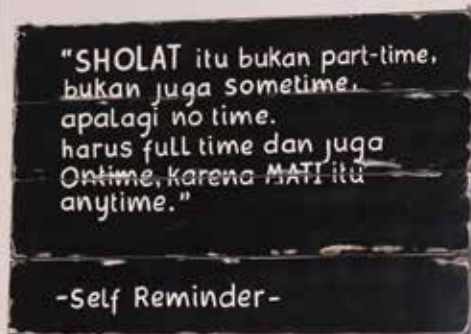 "SHOLAT itu bukan part-time,
bukan juga sometime,
apalagi no time.
harus full time dan juga
Ontime, karena MATI itu
anytime."
-Self Reminder-